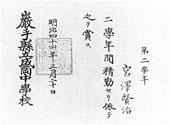 第二學年
宮澤賢治
二學年間精勤セリ依テ
之ヲ賞ス
明治四十四年三月二十日
巖手縣立盛岡中學校